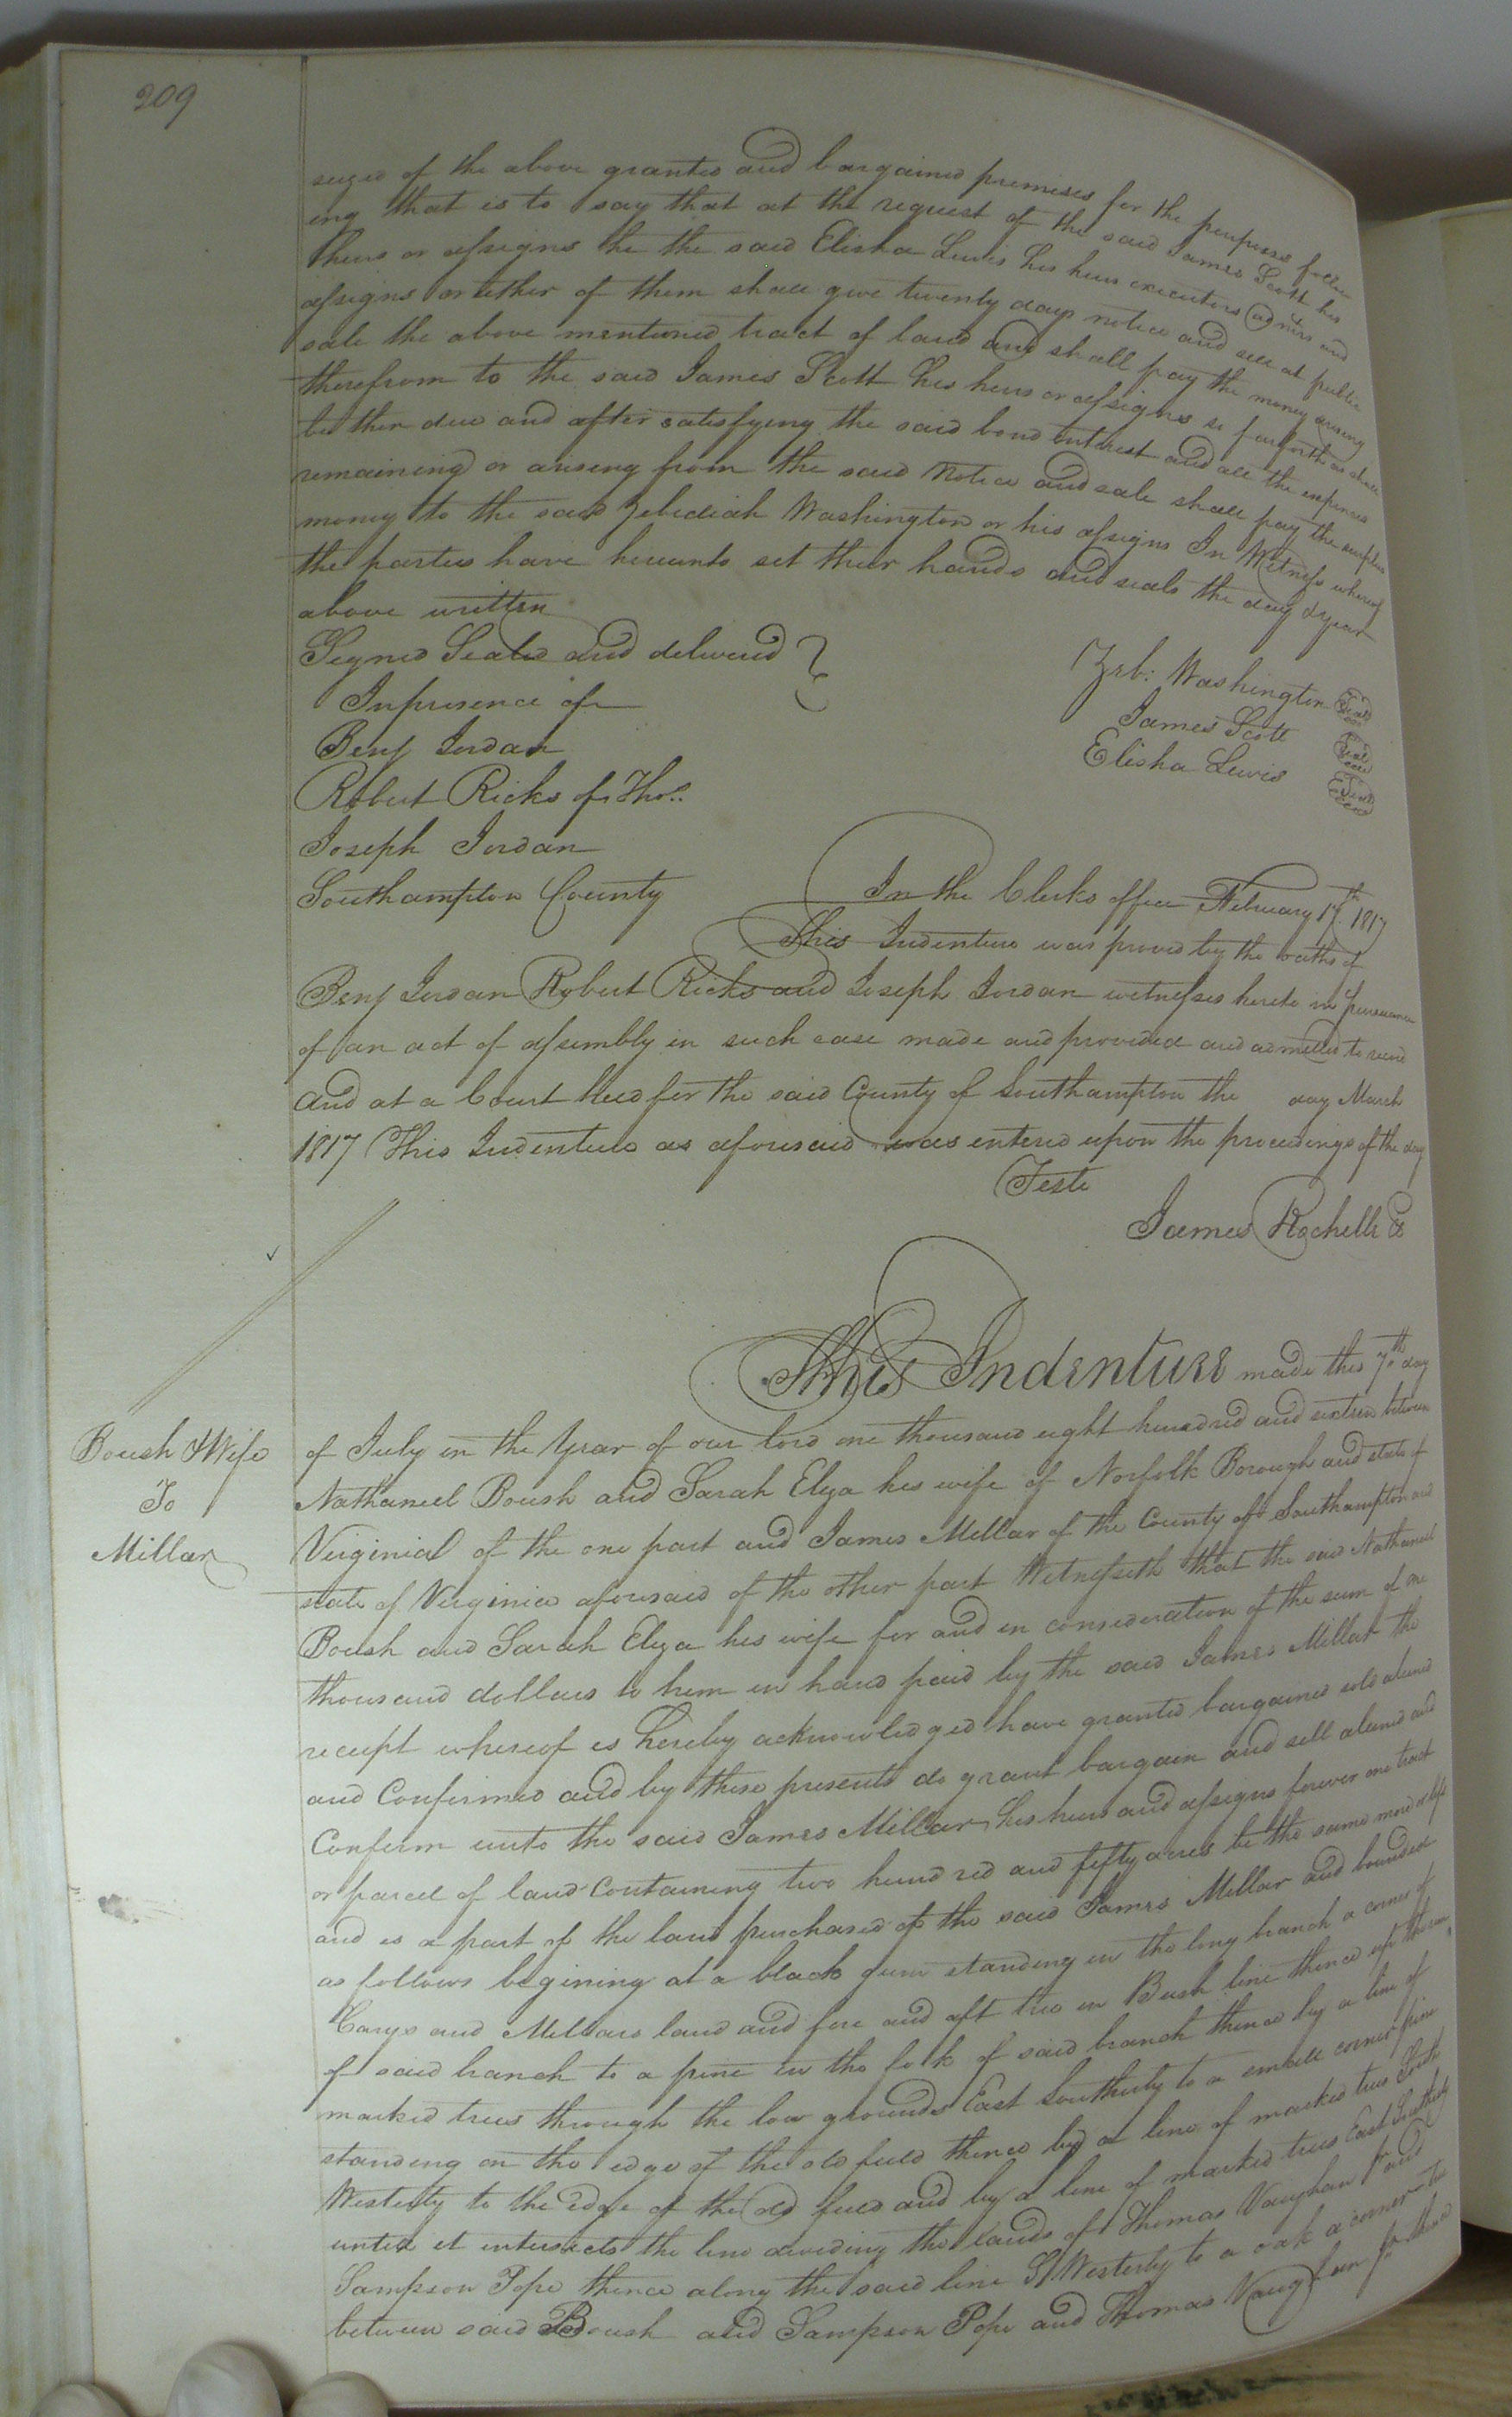 209
seized of the above granted and bargained premises for the purposes follow
ing that is to say that at the request of the said James Scott his
heirs or assigns he the said Elisha Lewis his heirs executors admrs and
assigns or either of them shall give twenty days notice and sell at public
sale the above mentioned tract of land and shall pay the money arising
therefrom to the said James Scott his heirs or assigns so far forth as shall
be then due and after satisfying the said bond interest and all the expences
remaining or arising from the said notice and sale shall pay the surplus
money to the said Zebediah Washington or his assigns In Witness whereof
the parties have hereunto set their hands and seals the day & year
above written
Signed Sealed and delivered
In presence of
Benj Jordan
Robert Ricks of Thos.
Joseph Jordan
Zeb: Washington Seal
James Scott Seal
Elisha Lewis Seal
Southampton County In the Clerks office February 17th 1817
This Indenture was proved by the oaths of
Benj Jordan Robert Ricks and Joseph Jordan witnesses hereto in pursuance
of an act of assembly in such case made and provided and admitted to record
And at a Court held for the said County of Southampton the day March
1817 This Indenture as aforesaid was entered upon the proceedings of the day
Teste
James Rochelle Cl
Boush & Wife
To
Millar
This Indenture made this 7th day
of July in the Year of our lord one thousand eight hundred and sixteen between
Nathaniel Boush and Sarah Elza his wife of Norfolk Borough and state of
Virginia of the one part and James Millar of the County of Southampton and
state of Virginia aforesaid of the other part Witnesseth that the said Nathaniel
Boush and Sarah Elza his wife for and in consideration of the sum of one
thousand dollars to him in hand paid by the said James Millar the
receipt whereof is hereby acknowledged have granted bargained sold aliened
and Confirmed and by these presents do grant bargain and sell aliened and
Confirm unto the said James Millar his heirs and assigns forever one tract
or parcel of land Containing two hundred and fifty acres be the same more or less
and is a part of the land purchased of the said James Millar and bounded
as follows begining at a black gum standing in the long branch a corner of
Carys and Millars land and fore and aft tree in Bush line thence up the run
of said branch to a pine in the fork of said branch thence by a line of
marked trees through the low grounds East Southerly to a small corner pine
standing on the edge of the old field thence by a line of marked trees South
Westerly to the edge of the old field and by a line of marked trees East Southerly
until it intersects the line dividing the Lands of Thomas Vaughan Jr and
Sampson Pope thence along the said line S Westerly to a oak a corner tree
between said Boush and Sampson Pope and Thomas Vaughan Jr thence